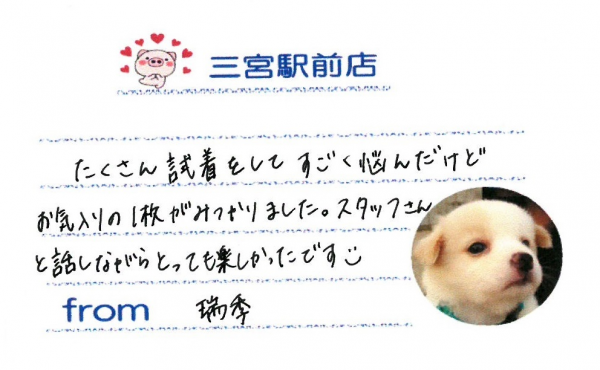 三宮駅前店
たくさん試着をしてすごく悩んだけど
お気入りの1枚がみつかりました。スタッフさん
と話しながらとっても楽しかったです
from 瑞季